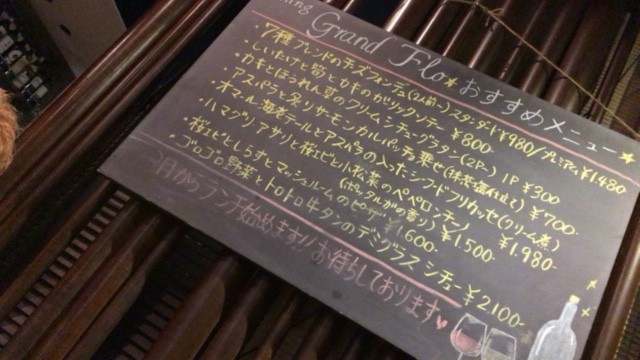 Grand Flo★おすすめメニュー★
・7種ブレンドのチーズフォンデュ(2人前〜)スタンダード¥980/プレミアム¥1,480
・しいたけと筍とカキのガリックソテー ¥800-
・カキとほうれんすのクリームシチューグラタン(2P〜) 1P ¥300
・アスパラと炙りサーモンカルパッチョ乗せ(抹茶塩和え) ¥700-
・オマール海老テールとアスパラの入ったシーフードフリカッセ(クリーム煮) ¥1,980-
・ハマグリアサリと桜エビと小松菜のペペロンチーノ(ボンゴレの香り) ¥1,500-
・桜エビとしらすとマッシュルームのピザ ¥1,600-
・ゴロゴロ野菜とトロトロ牛タンのデミグラスシチュー¥2100-
月からランチ始めます!!お待ちしております♥